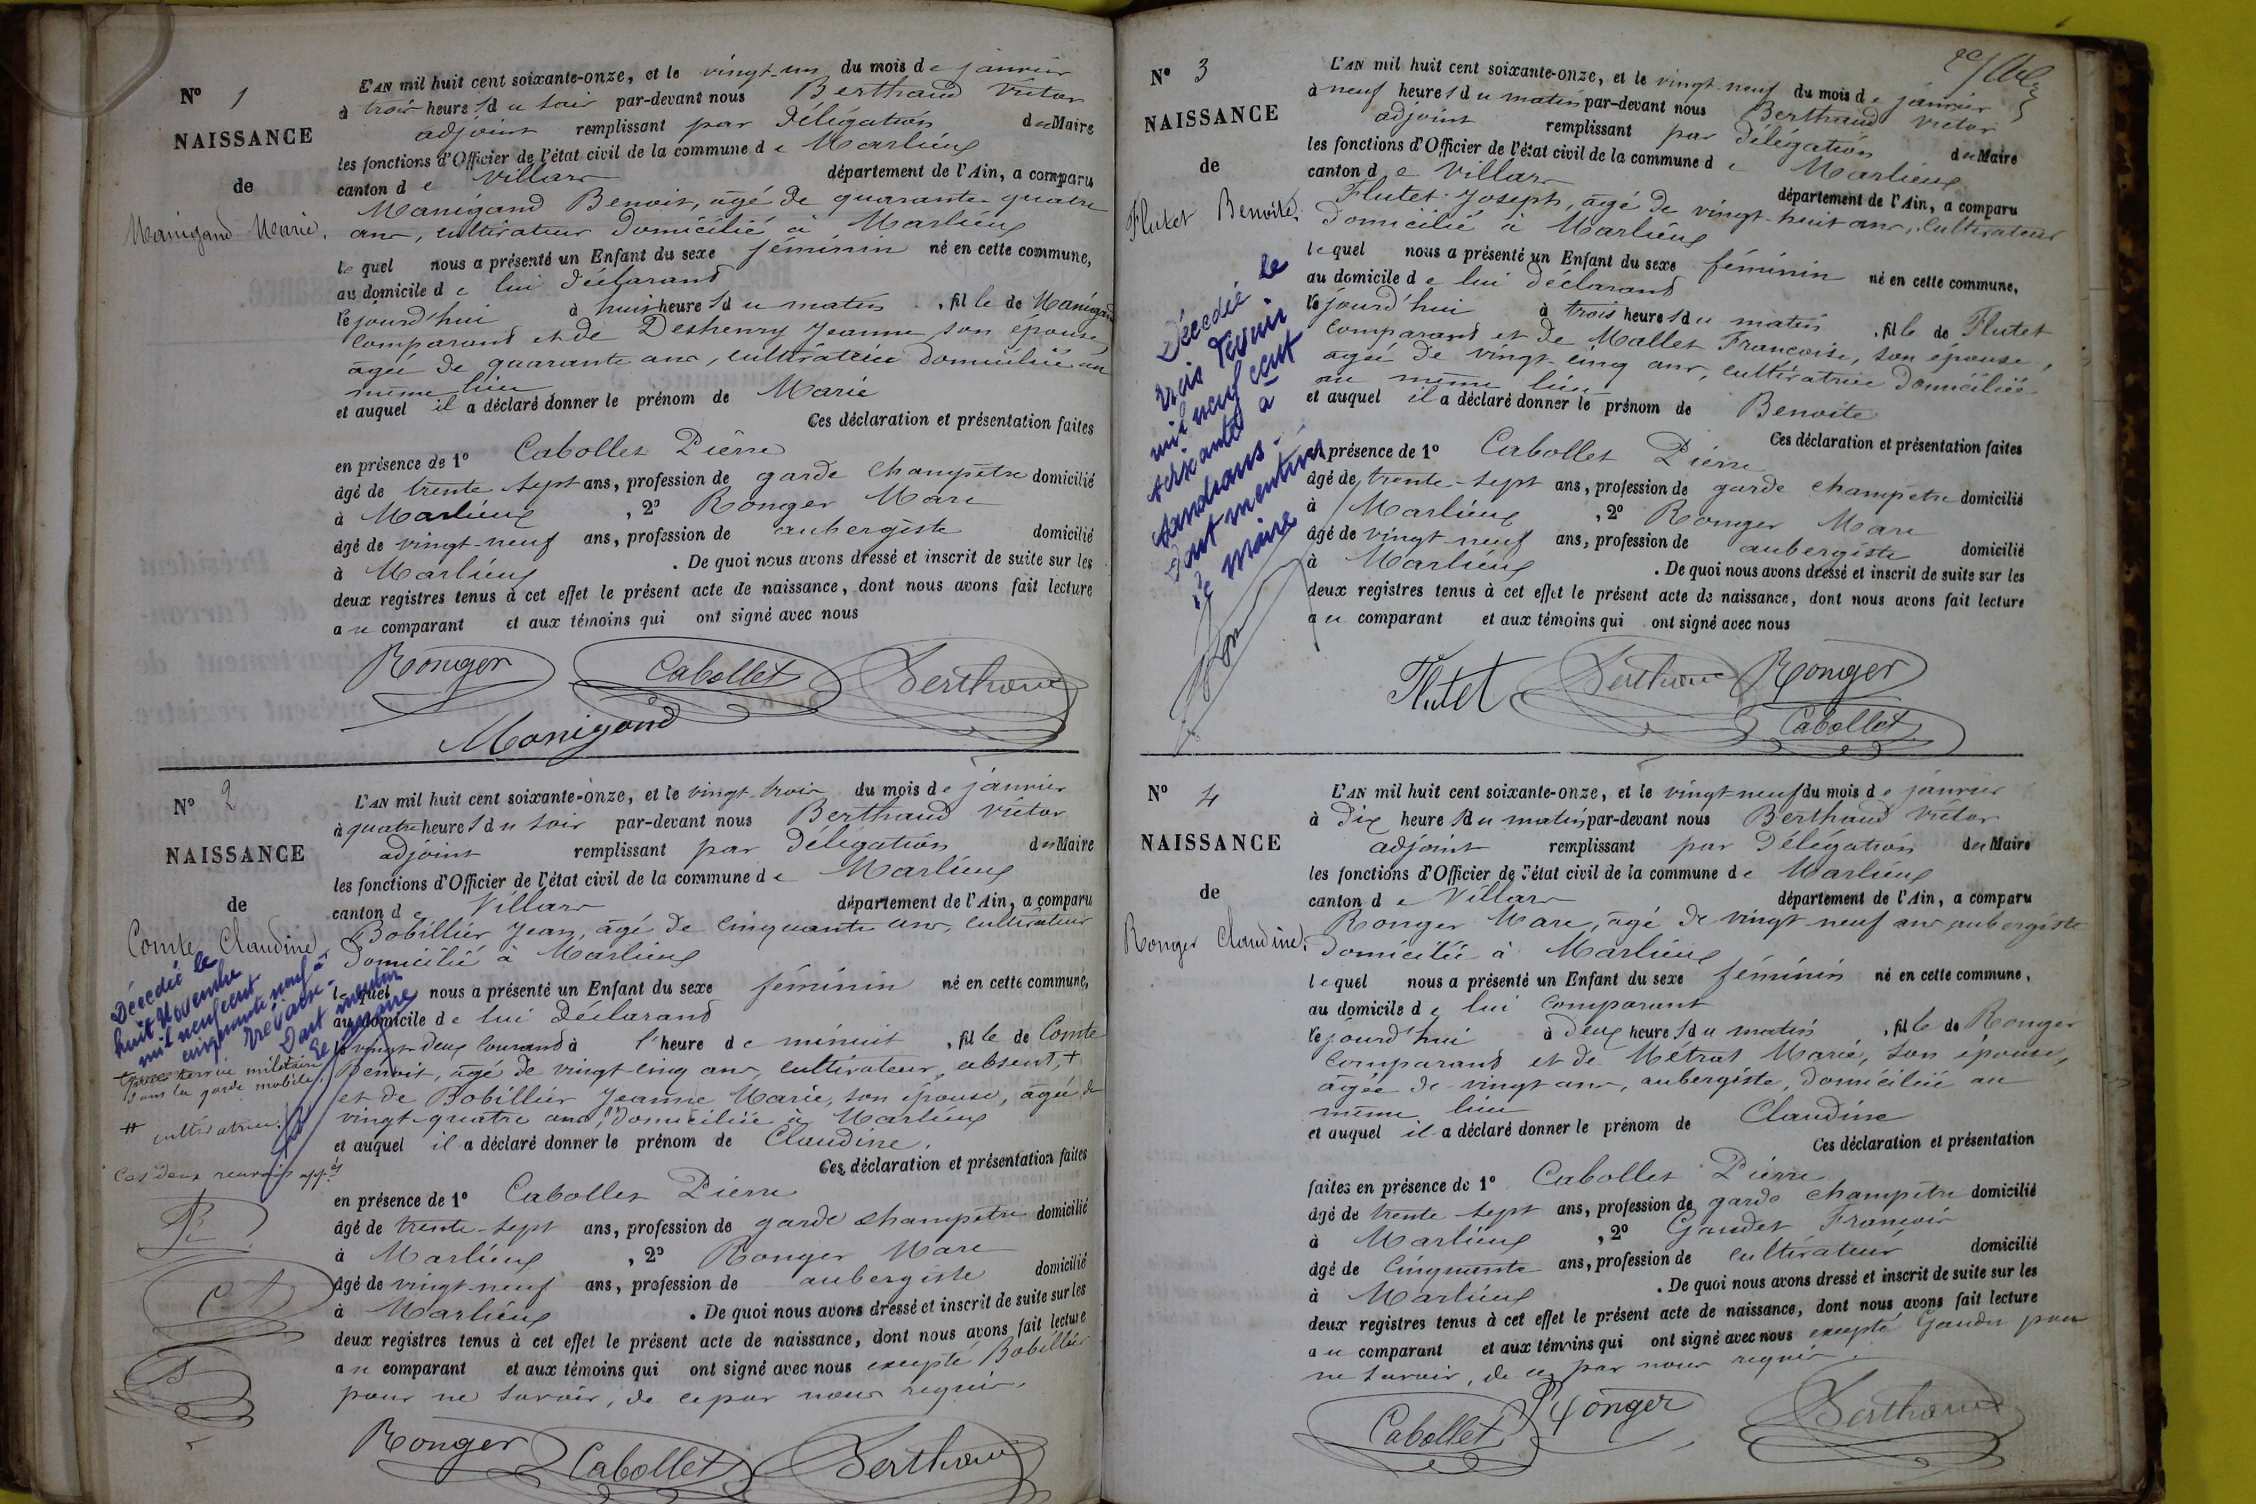 N° 1
NAISSANCE
de
Manigand Marie.
L'AN mil huit cent soixante-onze, et le vingt-un du mois de janvier
à trois heures du soir par-devant nous Berthaud Victor
adjoint remplissant par délégation du Maire
les fonctions d'Officier de l'état civil de la commune de Marlieux
canton de Villars département de l'Ain, a comparu
Manigand Benoit, âgé de quarante-quatre
ans, cultivateur domicilié à Marlieux
lequel nous a présenté un Enfant du sexe féminin né en cette commune,
au domicile de lui déclarant
le jourd'hui à huit heures du matin, fille de Manigand
comparant et de Deshenry Jeanne, son épouse,
âgée de quarante ans, cultivatrice domiciliée au
même lieu
et auquel il a déclaré donner le prénom de Marie
Ces déclaration et présentation faites
en présence de 1° Cabollet Pierre
âgé de trente sept ans, profession de garde champêtre domicilié
à Marlieux, 2° Ronger Marc
âgé de vingt-neuf ans, profession de aubergiste domicilié
à Marlieux. De quoi nous avons dressé et inscrit de suite sur les
deux registres tenus à cet effet le présent acte de naissance, dont nous avons fait lecture
au comparant et aux témoins qui ont signé avec nous
Ronger Cabollet Berthaud
Manigand
N° 2
NAISSANCE
de
Comte Claudine
Décédée le
huit Novembre
mil neuf cent
cinquante neuf à
Trévoux.
Dont mention
Le Maire
+ pour service militaire
dans la garde mobile.
# cultivatrice.
Ces deux renvois app.és
R
C
B
L'AN mil huit cent soixante-onze, et le vingt-trois du mois de janvier
à quatre heures du soir par-devant nous Berthaud Victor
adjoint remplissant par délégation du Maire
les fonctions d'Officier de l'état civil de la commune de Marlieux
canton de Villars département de l'Ain, a comparu
Bobillier Jean, âgé de cinquante ans, cultivateur
domicilié à Marlieux
lequel nous a présenté un Enfant du sexe féminin né en cette commune,
au domicile de lui déclarant
le vingt-deux courant à l'heure de minuit, fille de Comte
Benoit, âgé de vingt-cinq ans, cultivateur, absent, +
et de Bobillier Jeanne Marie, son épouse, âgée de
vingt-quatre ans, # domiciliée à Marlieux
et auquel il a déclaré donner le prénom de Claudine.
Ces déclaration et présentation faites
en présence de 1° Cabollet Pierre
âgé de trente-sept ans, profession de garde champêtre domicilié
à Marlieux, 2° Ronger Marc
âgé de vingt neuf ans, profession de aubergiste domicilié
à Marlieux. De quoi nous avons dressé et inscrit de suite sur les
deux registres tenus à cet effet le présent acte de naissance, dont nous avons fait lecture
au comparant et aux témoins qui ont signé avec nous excepté Bobillier
pour ne savoir, de ce par nous requis.
Ronger Cabollet Berthaud
N° 3
NAISSANCE
de
Flutet Benoite.
Décédée le
trois Février
mil neuf cent
soixante à
Sandrans.
Dont mention
Le Maire
L'AN mil huit cent soixante-onze, et le vingt-neuf du mois de janvier
à neuf heures du matin par-devant nous Berthaud Victor
adjoint remplissant par délégation du Maire
les fonctions d'Officier de l'état civil de la commune de Marlieux
canton de Villars département de l'Ain, a comparu
Flutet Joseph, âgé de vingt-huit ans, cultivateur
domicilié à Marlieux
lequel nous a présenté un Enfant du sexe féminin né en cette commune,
au domicile de lui déclarant
le jourd'hui à trois heures du matin, fille de Flutet
comparant et de Mallet Françoise, son épouse,
âgée de vingt-cinq ans, cultivatrice domiciliée
au même lieu
et auquel il a déclaré donner le prénom de Benoite
Ces déclaration et présentation faites
en présence de 1° Cabollet Pierre
âgé de trente-sept ans, profession de garde champêtre domicilié
à Marlieux, 2° Ronger Marc
âgé de vingt neuf ans, profession de aubergiste domicilié
à Marlieux. De quoi nous avons dressé et inscrit de suite sur les
deux registres tenus à cet effet le présent acte de naissance, dont nous avons fait lecture
au comparant et aux témoins qui ont signé avec nous
Flutet Berthaud Ronger
Cabollet
N° 4
NAISSANCE
de
Ronger Claudine.
L'AN mil huit cent soixante-onze, et le vingt-neuf du mois de janvier
à dix heures du matin par-devant nous Berthaud Victor
adjoint remplissant par délégation du Maire
les fonctions d'Officier de l'état civil de la commune de Marlieux
canton de Villars département de l'Ain, a comparu
Ronger Marc, âgé de vingt neuf ans aubergiste
domicilié à Marlieux
lequel nous a présenté un Enfant du sexe féminin né en cette commune,
au domicile de lui comparant
le jourd'hui à deux heures du matin, fille de Ronger
comparant et de Métrat Marie, son épouse,
âgée de vingt ans, aubergiste, domiciliée au
même lieu
et auquel il a déclaré donner le prénom de Claudine
Ces déclaration et présentation
faites en présence de 1° Cabollet Pierre
âgé de trente sept ans, profession de garde champêtre domicilié
à Marlieux, 2° Gaudet François
âgé de cinquante ans, profession de cultivateur domicilié
à Marlieux. De quoi nous avons dressé et inscrit de suite sur les
deux registres tenus à cet effet le présent acte de naissance, dont nous avons fait lecture
au comparant et aux témoins qui ont signé avec nous excepté Gaudet pour
ne savoir, de ce par nous requis.
Cabollet Ronger Berthaud